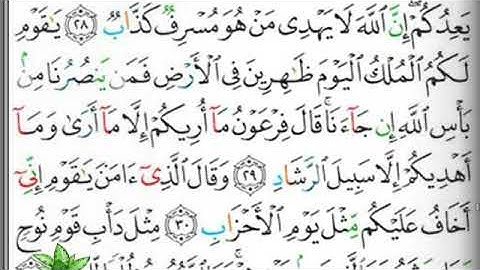 يَعِدُكُمۡۖ إِنَّ ٱللَّهَ لَا يَهۡدِي مَنۡ هُوَ مُسۡرِفٞ كَذَّابٞ ٢٨ يَٰقَوۡمِ
لَكُمُ ٱلۡمُلۡكُ ٱلۡيَوۡمَ ظَٰهِرِينَ فِي ٱلۡأَرۡضِ فَمَن يَنصُرُنَا مِنۢ
بَأۡسِ ٱللَّهِ إِن جَآءَنَاۚ قَالَ فِرۡعَوۡنُ مَآ أُرِيكُمۡ إِلَّا مَآ أَرَىٰ وَمَآ
أَهۡدِيكُمۡ إِلَّا سَبِيلَ ٱلرَّشَادِ ٢٩ وَقَالَ ٱلَّذِيٓ ءَامَنَ يَٰقَوۡمِ إِنِّيٓ
أَخَافُ عَلَيۡكُم مِّثۡلَ يَوۡمِ ٱلۡأَحۡزَابِ ٣٠ مِثۡلَ دَأۡبِ قَوۡمِ نُوحٖ